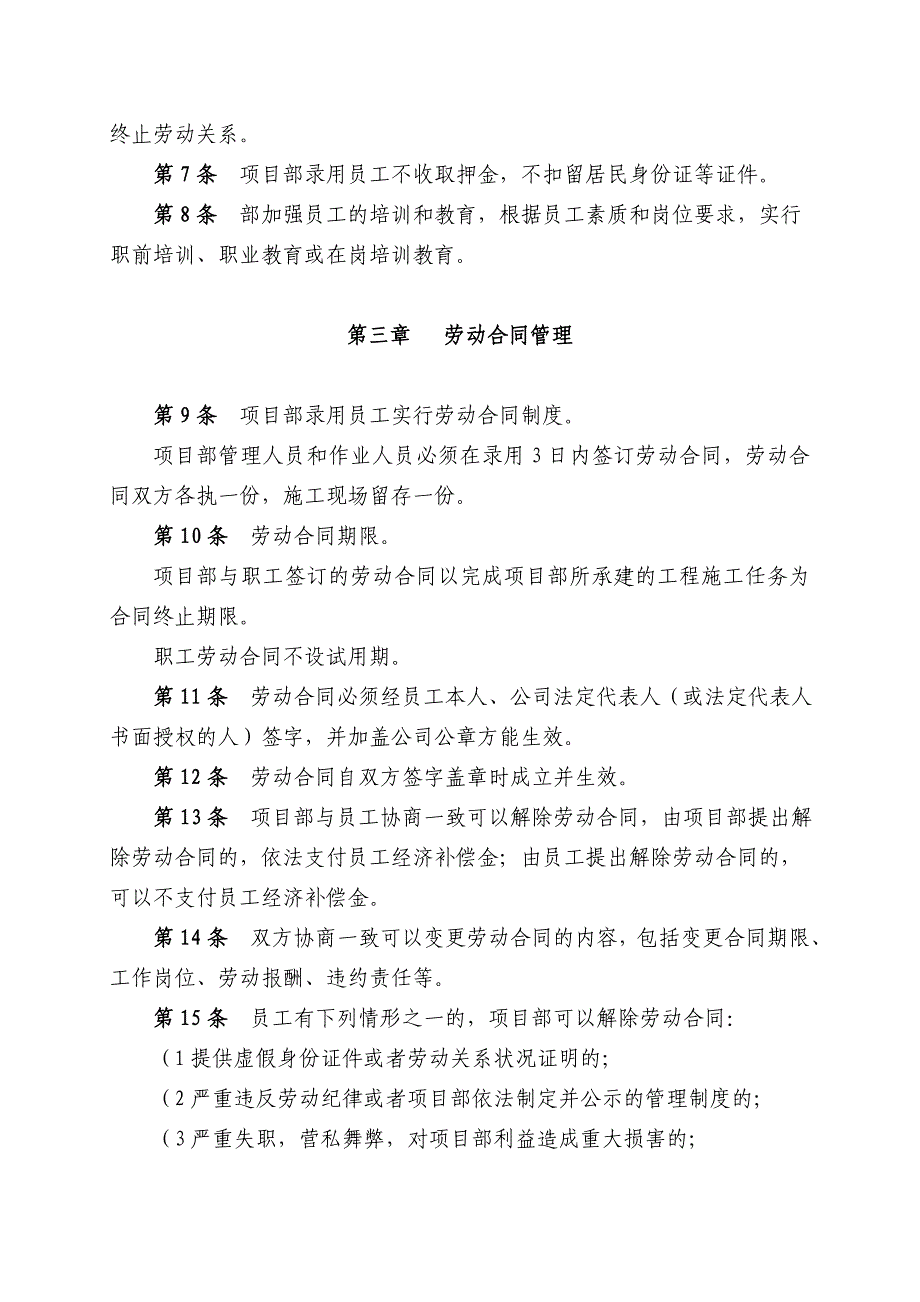 终止劳动关系。
第7条　项目部录用员工不收取押金，不扣留居民身份证等证件。
第8条　部加强员工的培训和教育，根据员工素质和岗位要求，实行
职前培训、职业教育或在岗培训教育。
第三章　劳动合同管理
第9条　项目部录用员工实行劳动合同制度。
项目部管理人员和作业人员必须在录用3日内签订劳动合同，劳动合
同双方各执一份，施工现场留存一份。
第10条　劳动合同期限。
项目部与职工签订的劳动合同以完成项目部所承建的工程施工任务为
合同终止期限。
职工劳动合同不设试用期。
第11条　劳动合同必须经员工本人、公司法定代表人（或法定代表人
书面授权的人）签字，并加盖公司公章方能生效。
第12条　劳动合同自双方签字盖章时成立并生效。
第13条　项目部与员工协商一致可以解除劳动合同，由项目部提出解
除劳动合同的，依法支付员工经济补偿金；由员工提出解除劳动合同的，
可以不支付员工经济补偿金。
第14条　双方协商一致可以变更劳动合同的内容，包括变更合同期限、
工作岗位、劳动报酬、违约责任等。
第15条　员工有下列情形之一的，项目部可以解除劳动合同：
（1提供虚假身份证件或者劳动关系状况证明的；
（2严重违反劳动纪律或者项目部依法制定并公示的管理制度的；
（3严重失职，营私舞弊，对项目部利益造成重大损害的；